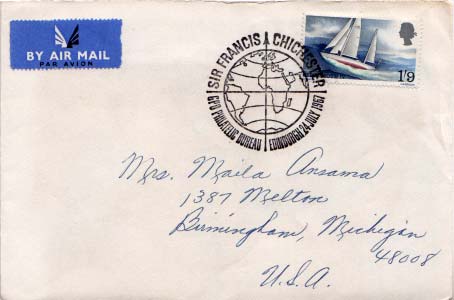 BY AIR MAIL
PAR AVION
SIR FRANCIS CHICHESTER
GPO PHILATELIC BUREAU EDINBURGH 24 JULY 1967
1'9
Mrs. Maila Ansama
1387 Melton
Birmingham, Michigan
48008
U.S.A.